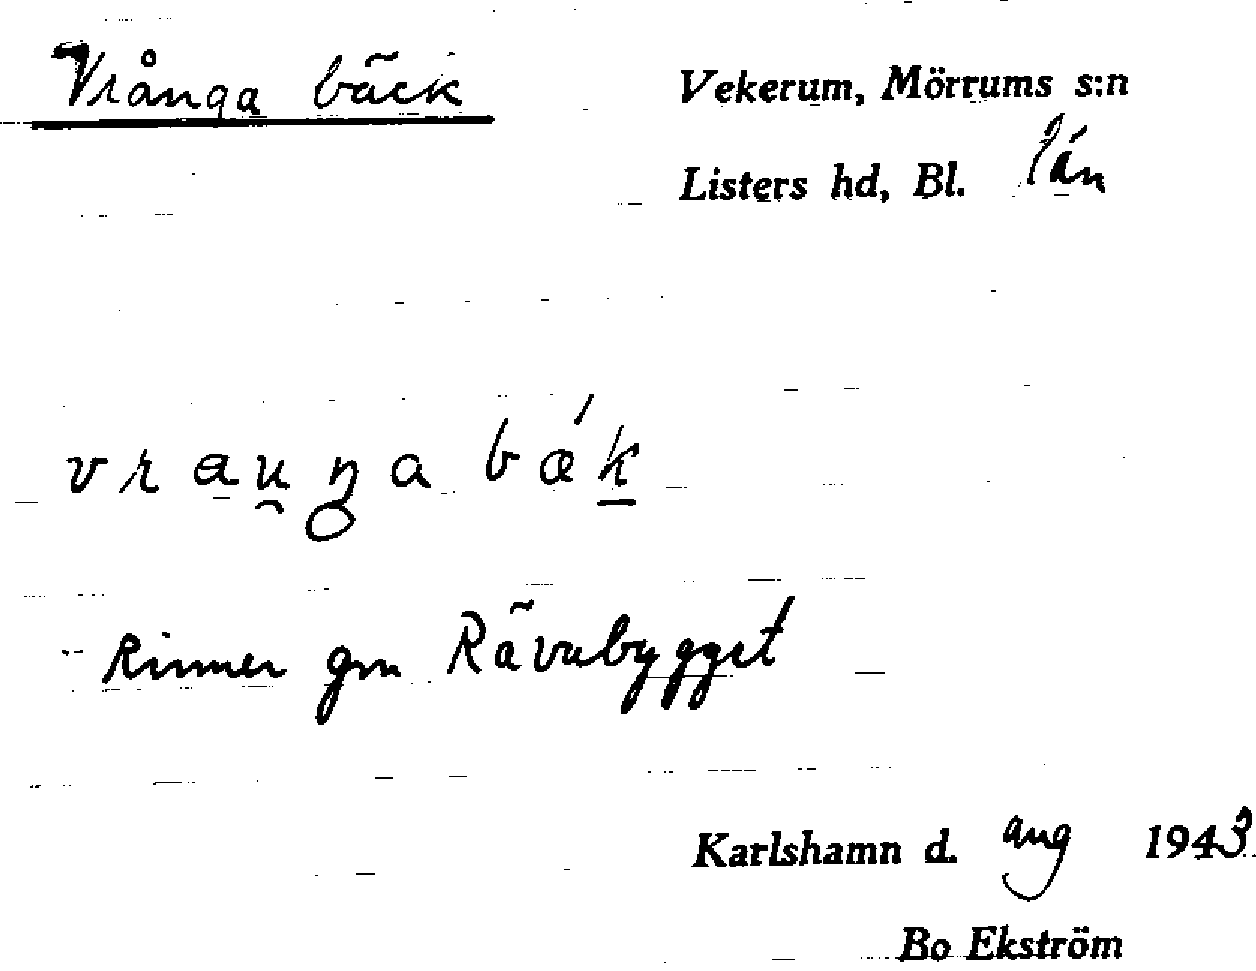 Vrånga bäck
Vekerum, Mörrums s:n
Listers hd, Bl. län
vrau̯ŋa bǽk
Rinner gm Rävabygget
Karlshamn d. aug 1943
Bo Ekström